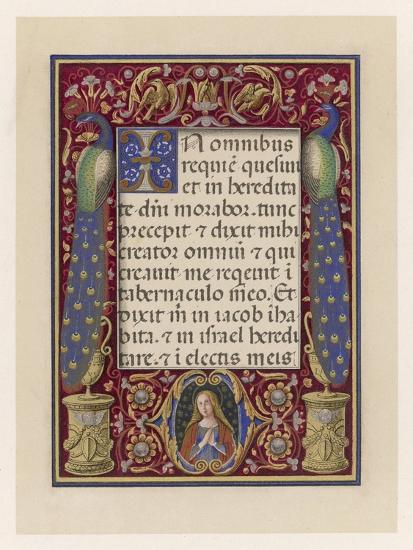 IN omnibus
requiē quesiui
et in heredita
te dn̄i morabor. tunc
precepit ⁊ dixit mihi
creator omniū ⁊ qui
creauit me requeuit ī
tabernaculo meo. Et
dixit m̄ in iacob iha
bita. ⁊ in israel heredi
tare. ⁊ ī electis meis